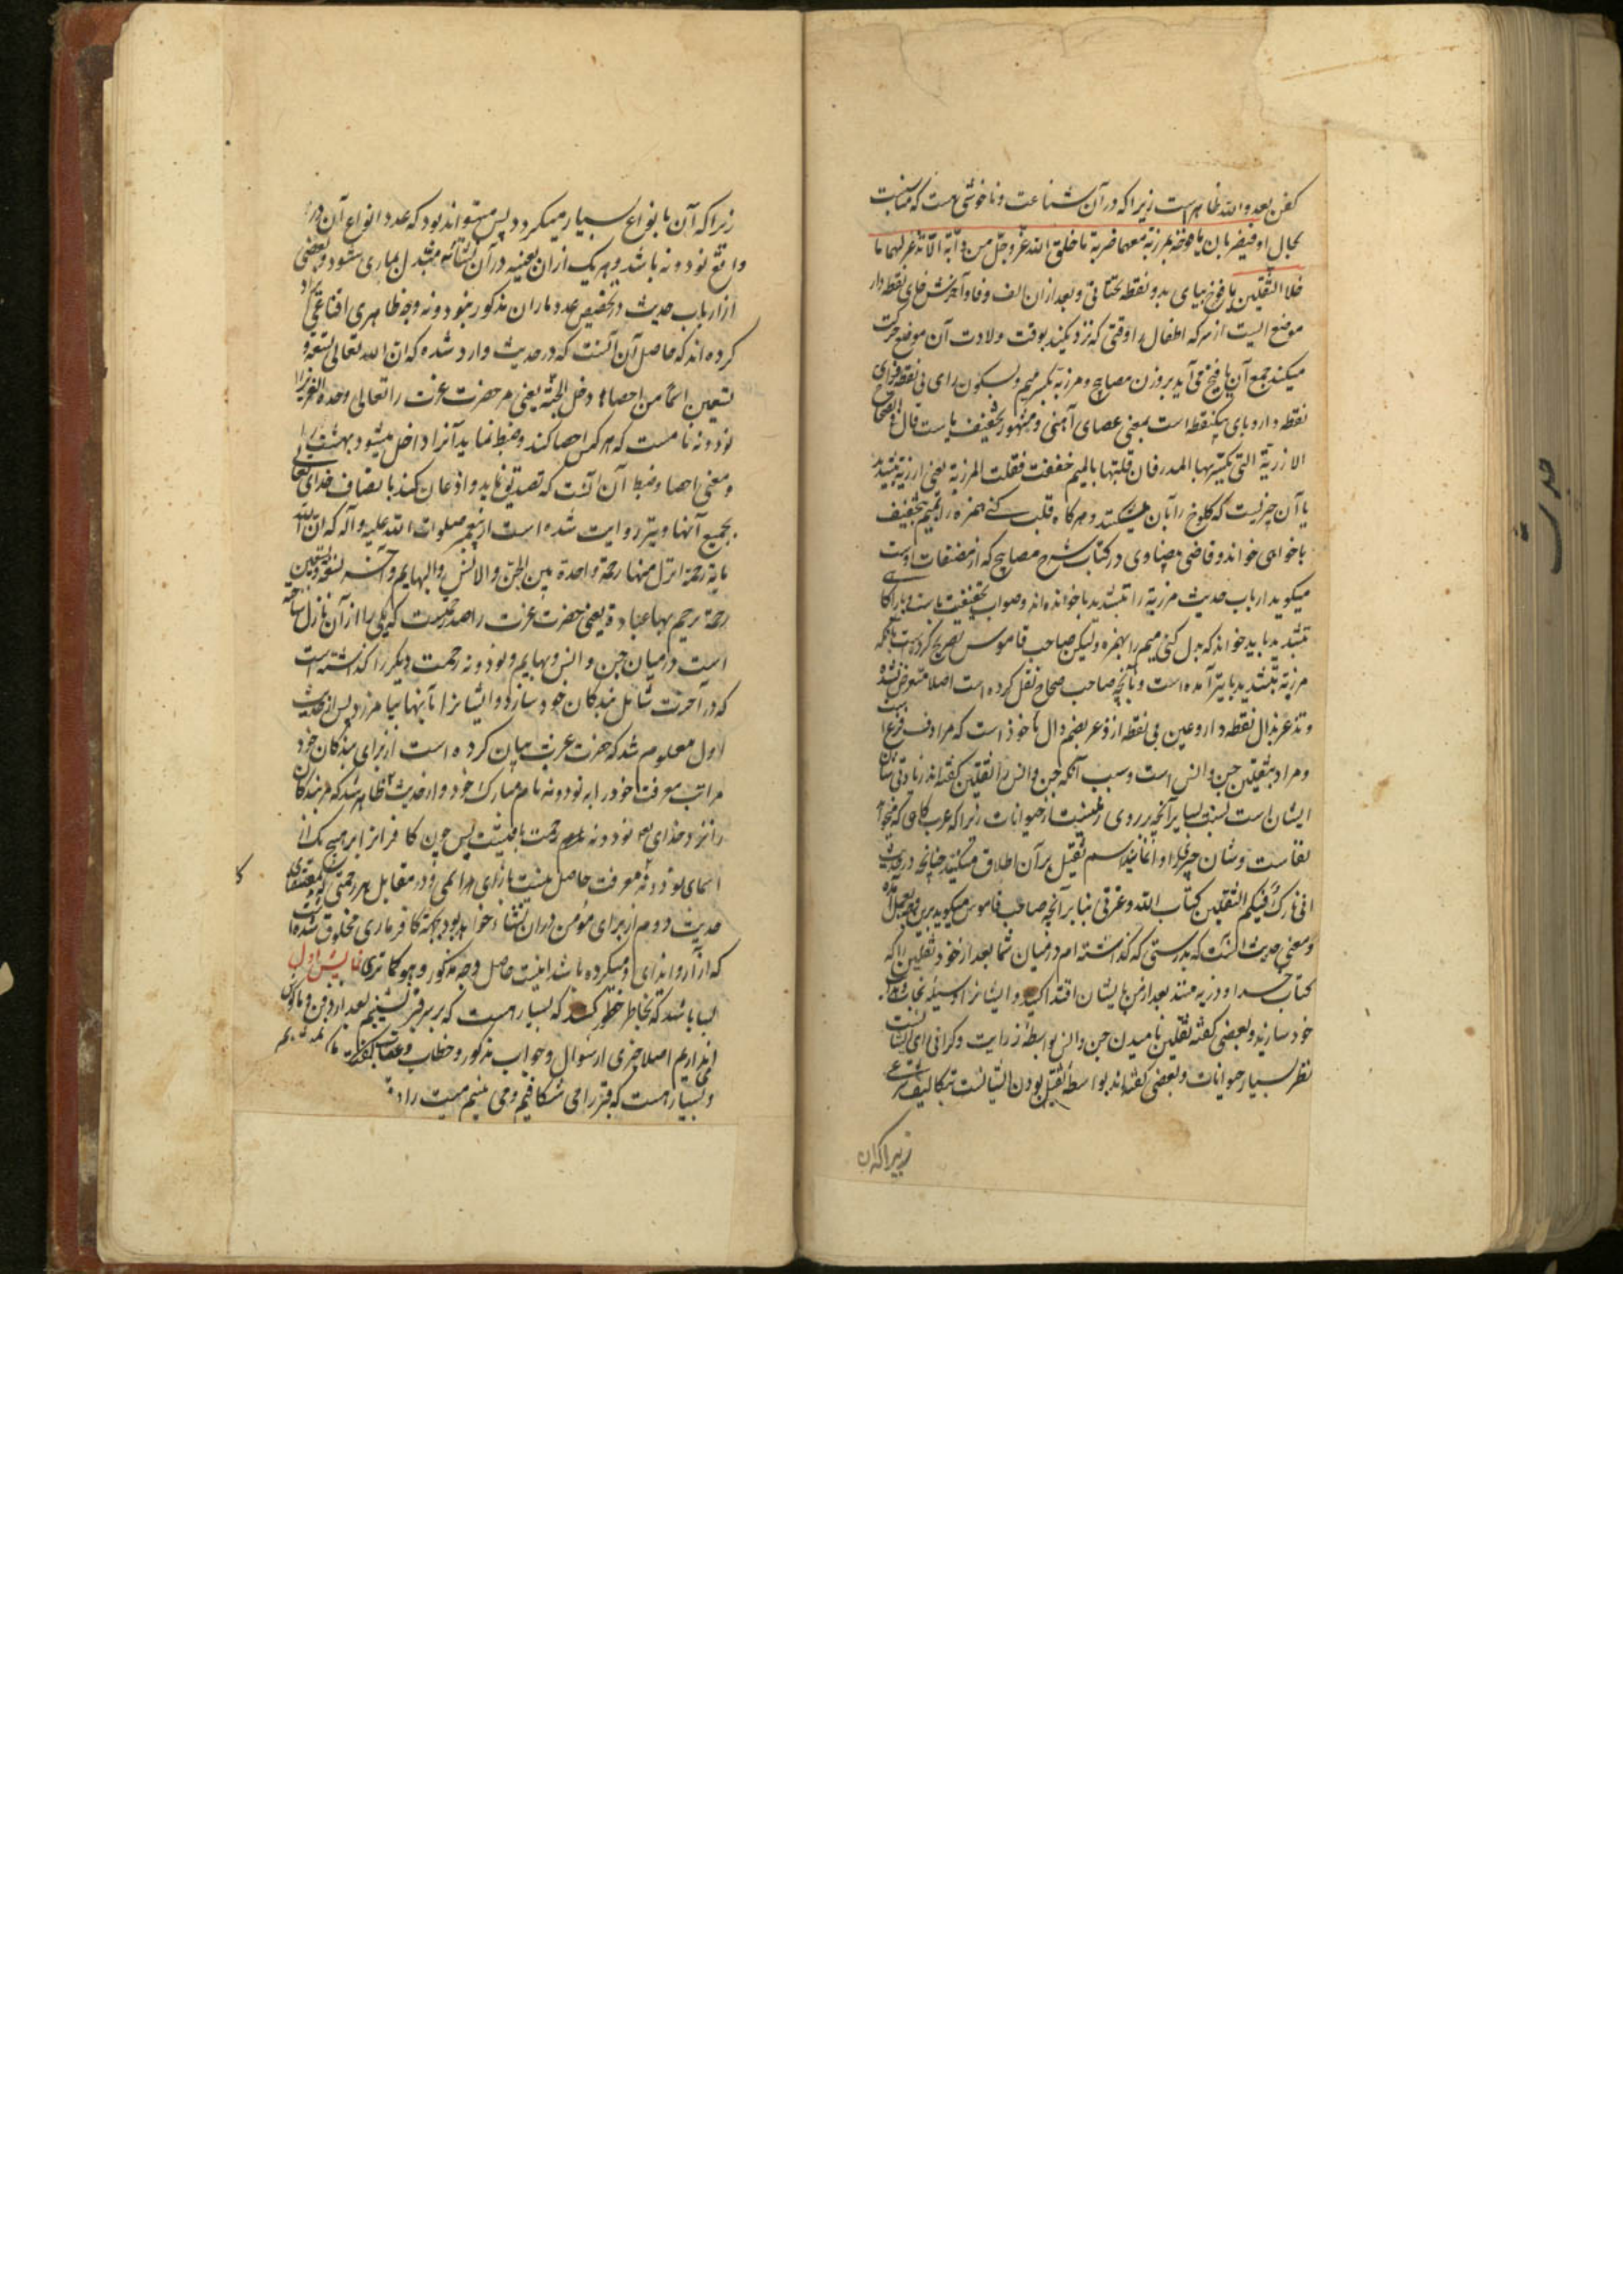 کفن بعدو الله ظاهر است زیرا که در آن شناعت و ناخوشی هست که مناسبت
بحال او فیضربان یافوخه بمرزبة معهما ضربة ما خلق الله عز و جل من دابة الا تذعر لها ما
خلا الثقلین یافوخ بیای بدو نقطه تحتانی و بعد ازان الف و فا و آخرش خای نقطه دار
موضع ایست از سر که اطفال را وقتی که نزدیکند بوقت ولادت آن موضع حرکت
میکند جمع آن یافیخ می آید بر وزن مصابیح و مرزبه بکسر میم و بسکون رای بی نقطه و زای
نقطه دار و بای یکنقطه است بمعنی عصای آهنی و مشهور تخفیف با ست قال فی الصحاح
الارزبة التی یکسر بها المدر فان قلبتها بالمیم خففت فقلت المرزبة یعنی ارزبه بتشدید
با آن چیزیست که کلوخ را بآن میشکنند و هرکاه قلب کنی همزه را بمیم بتخفیف
با خواهی خواند و قاضی بیضاوی در کتاب شرح مصابیح که از مصنفات اوست
میکوید ارباب حدیث مرزبه را بتشدید با خوانده اند و صواب تخفیفت باست و با را کاهی
بتشدید باید خواند که بدل کنی میم را بهمزه ولیکن صاحب قاموس تصریح کرده است بآنکه
مرزبه بتشدید با نیز آمده است و بآنچه صاحب صحاح نقل کرده است اصلا متعرض نشده
و تذعر بذال نقطه دار و عین بی نقطه از ذعر بضم دال ماخوذ است که مرادف فزع است
و مراد بثقلین جن و انس است و سبب آنکه جن و انس را ثقلین کفته اند زیادتی شان
ایشان است نسبت بسایر آنچه بر روی زمینست از حیوانات زیرا که عرب کاهی که میخواهد
نفاست و شان چیزی را ادا نمایند اسم ثقیل بر آن اطلاق میکنند چنانچه در حدیث
انی تارک فیکم الثقلین کتاب الله و عترتی بنابر آنچه صاحب قاموس میکوید برین معنی محمول
و معنی حدیث آنست که بدرستی که کذاشته ام در میان شما بعد از خود ثقلین را که
کتاب خدا و ذریه منند بعد از من بایشان اقتدا کنید و ایشانرا وسیله نجات
خود سازند و بعضی کفته ثقلین نامیدن جن و انس بواسطه رزانت و کرانی رای ایشانست
نظر بسایر حیوانات و بعضی کفته اند بواسطه ثقیل بودن ایشانست بتکالیف شرعی
زیرا که آن
زیرا که آن بانواع بسیار میکردد پس میتواند بود که عدد انواع آن در
واقع نود و نه باشد و هر یک ازان بعینه در آن نشأه مبتدل بماری شود و بعضی
از ارباب حدیث در تخصیص عدد ماران مذکور بنود و نه وجه ظاهری اقناعی
کرده اند که حاصل آن آنست که در حدیث وارد شده که ان الله تعالی تسعة و
تسعین اسما من احصاها دخل الجنة یعنی مر حضرت عزت را تعالی وحده العزیز
نود و نه نامست که هر کس احصا کند و ضبط نماید آنرا داخل میشود بهشت را
و معنی احصا و ضبط آن آنست که تصدیق نماید و اذعان کند باتصاف خدای تعالی
بجمیع آنها و نیز روایت شده است از پیغمبر صلوات الله علیه و آله که ان لله
مایة رحمة انزل منها رحمة واحدة بین الجن و الانس و البهایم و آخر تسعة و تسعین
رحمة یرحم بها عباده یعنی حضرت عزت را صد رحمتست که یکی را از آن نازل ساخته
است در میان جن و انس و بهایم و نود و نه رحمت دیکر را کذاشته است
که در آخرت شامل بندکان خود سازد و ایشانرا بآنها بیامرزد پس از حدیث
اول معلوم شد که حضرت عزت بیان کرده است از برای بندکان خود
مراتب معرفت خود را به نود و نه نام مبارک خود و از حدیث ظاهر شد که مر بندکان
را نزد خدای نود و نه رحمت باقیست پس چون کافر را از هیچ یک از
اسمای نود و نه معرفت حاصل نیست بازای هر اسمی و در مقابل هر رحمتی که بمقتضای
حدیث دوم از برای مؤمن در آن نشاة خواهد بود بجهة کافر ماری مخلوق شده
که از آزار و ایذای او میکرده باشد اینست حاصل وجه مذکور و هو کما تری نمایش اول
بسا باشد که بخاطر خطور کند که بسیار هست که بر سر قبر نشینیم بعد از دفن و ما کوش
اندازیم اصلا خبری از سؤال و جواب مذکور و خطاب و عقاب
و بسیار هست که قبر را می شکافیم و می بینیم میت را